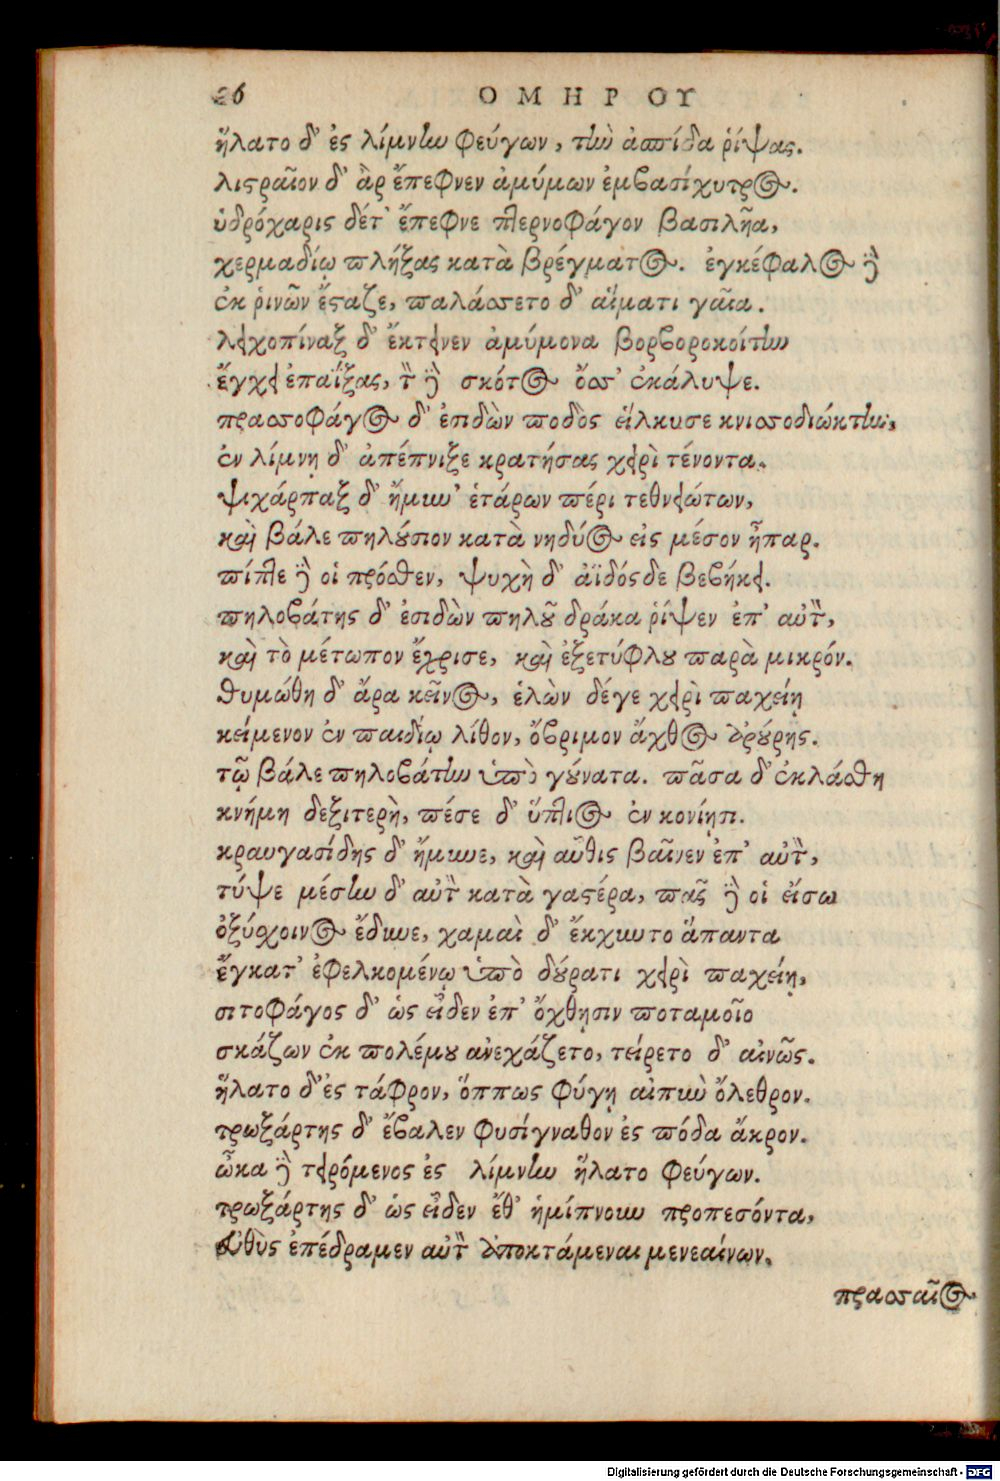 26 ΟΜΗΡΟΥ
ἥλατο δ' ἐς λίμνην φεύγων, τὴν ἀσπίδα ῥίψας.
λιτραῖον δ' ἂρ ἔπεφνεν ἀμύμων ἐμβασίχυτρος.
ὑδρόχαρις δέτ' ἔπεφνε πτερνοφάγον βασιλῆα,
χερμαδίῳ πλήξας κατὰ βρέγματος. ἐγκέφαλος δὲ
ἐκ ῥινῶν ἔσταζε, παλάσσετο δ' αἵματι γαῖα.
λειχοπίναξ δ' ἔκτεινεν ἀμύμονα βορβοροκοίτην
ἔγχει ἐπαΐξας, τὸν δὲ σκότος ὄσσ' ἐκάλυψε.
πρασσοφάγος δ' ἐπιδὼν ποδὸς εἵλκυσε κνισσοδιώκτην,
ἐν λίμνῃ δ' ἀπέπνιξε κρατήσας χειρὶ τένοντα.
ψιχάρπαξ δ' ἤμυν' ἑτάρων πέρι τεθνειώτων,
καὶ βάλε πηλούσιον κατὰ νηδύος εἰς μέσον ἧπαρ.
πίπτε δὲ οἱ πρόσθεν, ψυχὴ δ' ἀϊδόσδε βεβήκει.
πηλοβάτης δ' ἐσιδὼν πηλοῦ δράκα ῥίψεν ἐπ' αὐτὸν,
καὶ τὸ μέτωπον ἔχρισε, καὶ ἐξετύφλου παρὰ μικρόν.
θυμώθη δ' ἄρα κεῖνος, ἑλὼν δέγε χειρὶ παχείῃ
κείμενον ἐν παιδίῳ λίθον, ὄβριμον ἄχθος ἀρούρης.
τῷ βάλε πηλοβάτην ὑπὸ γούνατα. πᾶσα δ' ἐκλάσθη
κνήμη δεξιτερὴ, πέσε δ' ὕπτιος ἐν κονίῃσι.
κραυγασίδης δ' ἤμυνε, καὶ αὖθις βαῖνεν ἐπ' αὐτὸν,
τύψε μέσην δ' αὐτὸν κατὰ γαστέρα, πᾶς δὲ οἱ εἴσω
ὀξύσχοινος ἔδυνε, χαμαὶ δ' ἔκχυντο ἅπαντα
ἔγκατ' ἐφελκομένῳ ὑπὸ δούρατι χειρὶ παχείῃ,
σιτοφάγος δ' ὡς εἶδεν ἐπ' ὄχθῃσιν ποταμοῖο
σκάζων ἐκ πολέμου ἀνεχάζετο, τείρετο δ' αἰνῶς.
ἥλατο δ' ἐς τάφρον, ὅππως φύγῃ αἰπὺν ὄλεθρον.
τρωξάρτης δ' ἔβαλεν φυσίγναθον ἐς πόδα ἄκρον.
ὦκα δὲ τειρόμενος ἐς λίμνην ἥλατο φεύγων.
τρωξάρτης δ' ὡς εἶδεν ἔθ' ἡμίπνουν προπεσόντα,
εὐθὺς ἐπέδραμεν αὐτὸν ἀποκτάμεναι μενεαίνων.
πρασσαῖος
Digitalisierung gefördert durch die Deutsche Forschungsgemeinschaft - DFG